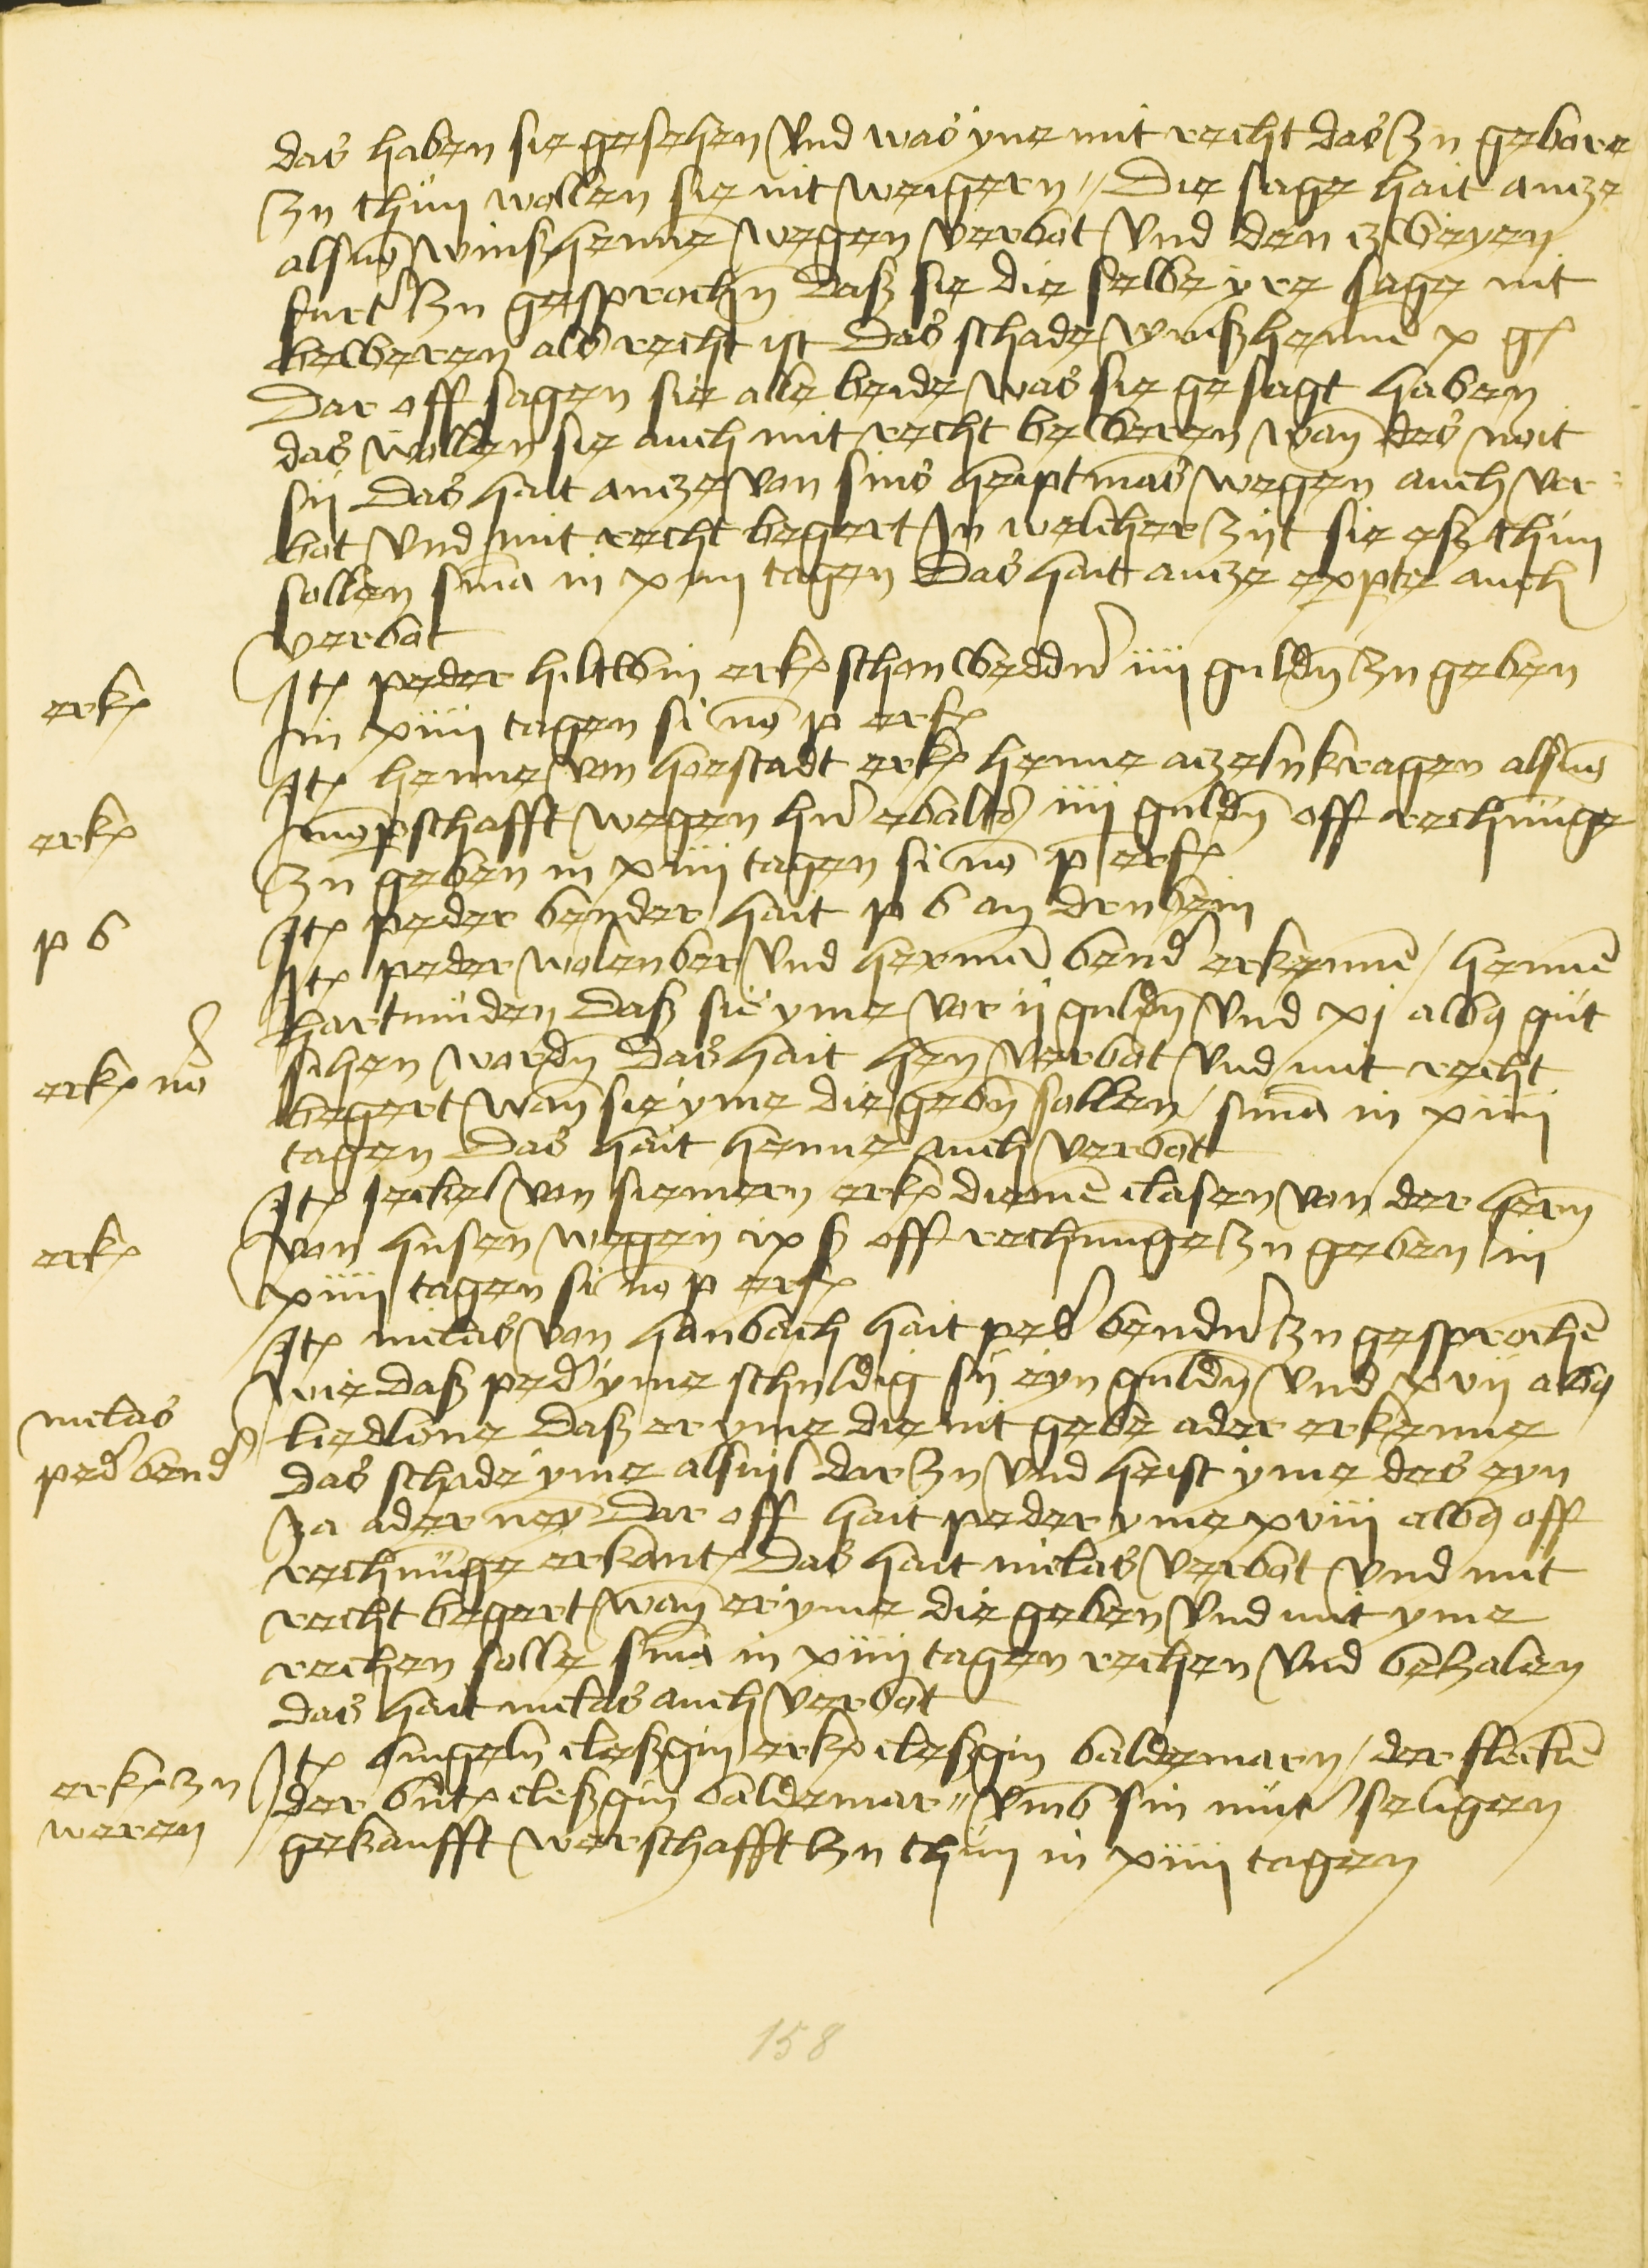 das haben sie gesehen Und was yne mit recht das zu gebore
zu thun wollen sie nit weigern // Die sage hait antze
als mo winßhenne wegen verbot Und den zweyen
furt zu gesprochn Daß sie die selbe yre sage nit
beweren als recht ist Das schade winßhenne x gl
Dar off sagen sie alle beide was sie gesagt haben
das wollen sie auch mit recht beweren wan des noit
sij Das hait antze von sins heuptmans wegen auch ver
bot Und mit recht begert In welcher zijt sie eß thun
sollen sma in xiiii tagen Das hait antze expte auch
verbot
erk
Itm peder hiltwin erk schonwedder iiii guldn zu geben
in xiiii tagen si no p erf
erk
Itm henne von hoestadt erk henne atzelnkragen als
mopschafft wegen hern ewalts iiii guldn off rechnunge
zu geben in xiiii tagen si no p erf
p b
Itm peder bender hait p b an drubein
Itm peder wolenber Und herman bend erkenne / henne
hartmuden Daß sie yme vor ij guldn Und xj albq gut
erk no
sihen wordn Das hait hen verbot Und mit recht
begert wan sie yme die gebn sollen / sma in xiiii
tagen Das hait henne auch verbot
erk
Itm seckel von siemern erk diemē clasen von der hern
von husen wegen ix ß off rechnunge zu geben in
xiiii tagen si no p erf
Itm niclas von hanbach hait ped bender zu gesprochē
wie daß ped yme schuldig sij eyn guldn Und xvij albq
niclas
ped bend
liedlone Daß er yme die nit gebe ader erkenne
das schade yme alsuil dar zu Und heist yme des eyn
ja ader ney Dar off hait peder yme xviii albq off
rechnūge erkant Das hait niclas verbot Und mit
recht begert wan er yme die geben Und mit yme
rechen solle sma in xiiii tagen rechen Und betzalen
das hait niclas auch verbot
erk zu
weren
Itm cleßgin erk cleßgin beldemarn / der fleckē
der cleßgin beldemar // vmb sin mut seligen
gekaufft werschafft zu thun in xiiii tagen
158